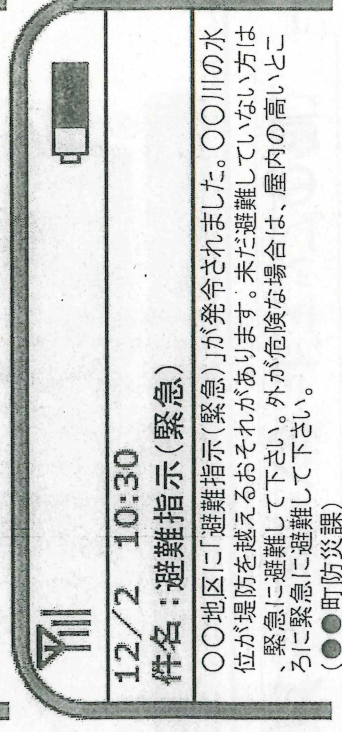 12/2 10:30
件名：避難指示(緊急)
〇〇地区に「避難指示(緊急)」が発令されました。〇〇川の水
位が堤防を越えるおそれがあります。未だ避難していない方は
、緊急に避難して下さい。外が危険な場合は、屋内の高いとこ
ろに緊急に避難して下さい。
(●●町防災課)